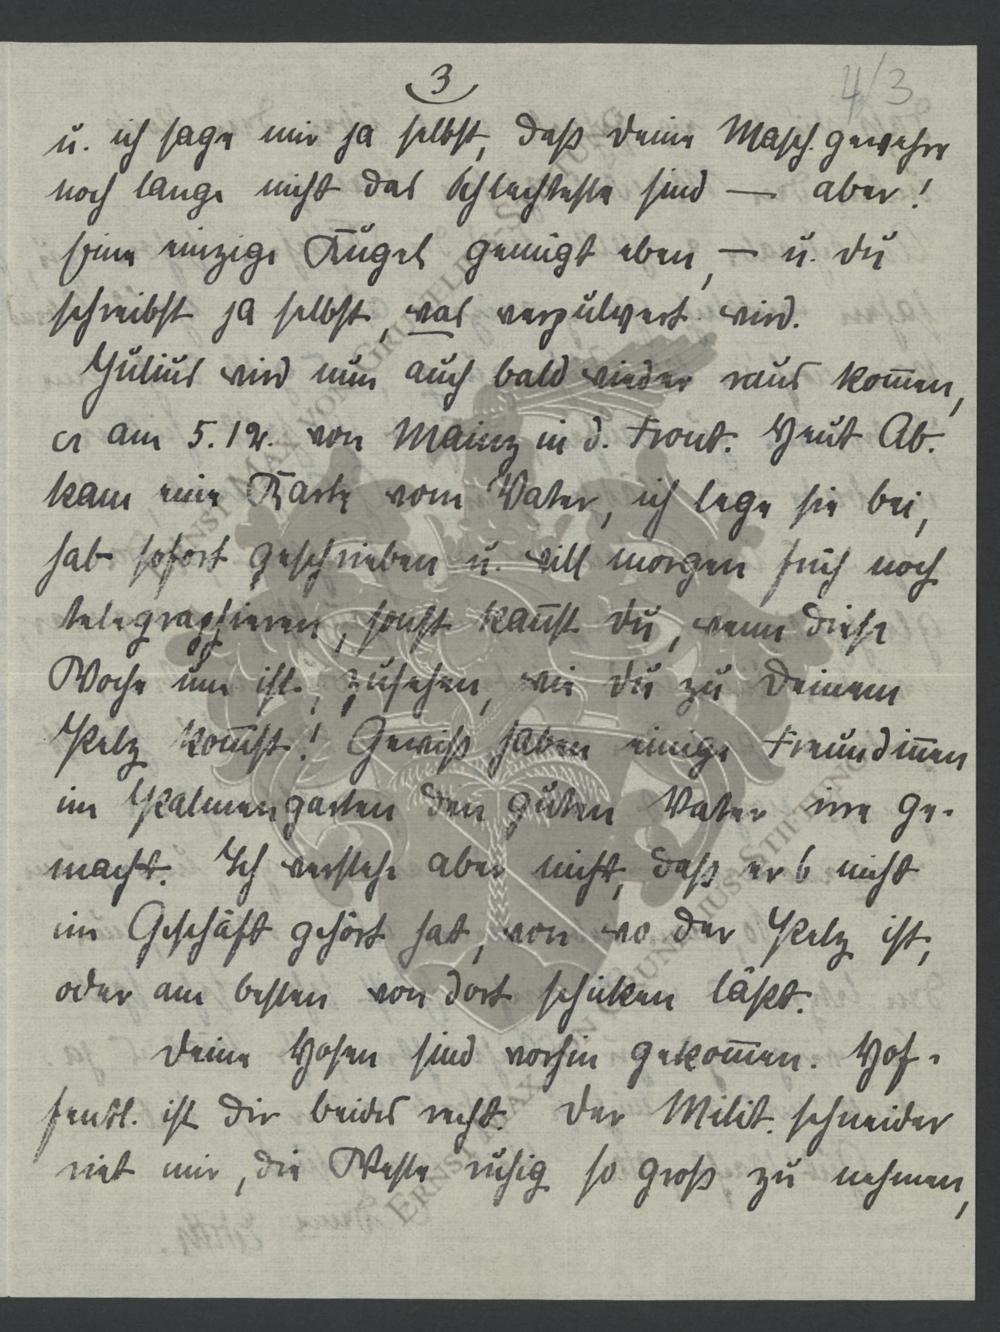 3
4/3
u. ich sage mir ja selbst, daß deine Masch. gewehre
noch lange nicht das Schlechteste sind — aber!
Eine einzige Kugel genügt eben, — u. du
schreibst ja selbst, was verpulvert wird.
Julius wird nun auch bald wieder raus kom̅en,
am 5. 12. von Mainz in d. Front. Heut Ab.
kam eine Karte vom Vater, ich lege sie bei,
hab sofort geschrieben u. will morgen früh noch
telegraphieren, sonst kan̅st du, wenn diese
Woche um ist, zusehen, wie du zu deinem
Pelz kom̅st! Gewiß haben einige Freundin̅en
im Palmengarten den guten Vater irre ge-
macht. Ich verstehe aber nicht, daß er's nicht
im Geschäft gehört hat, von wo der Pelz ist,
oder am besten von dort schicken läßt.
Deine Hosen sind vorhin gekom̅en. Hof-
fentl. ist dir beides recht. Der Milit. schneider
riet mir, die Weste ruhig so groß zu nehmen,
ERNST MAX VON GRUNELIUS-STIFTUNG
ERNST MAX VON GRUNELIUS-STIFTUNG